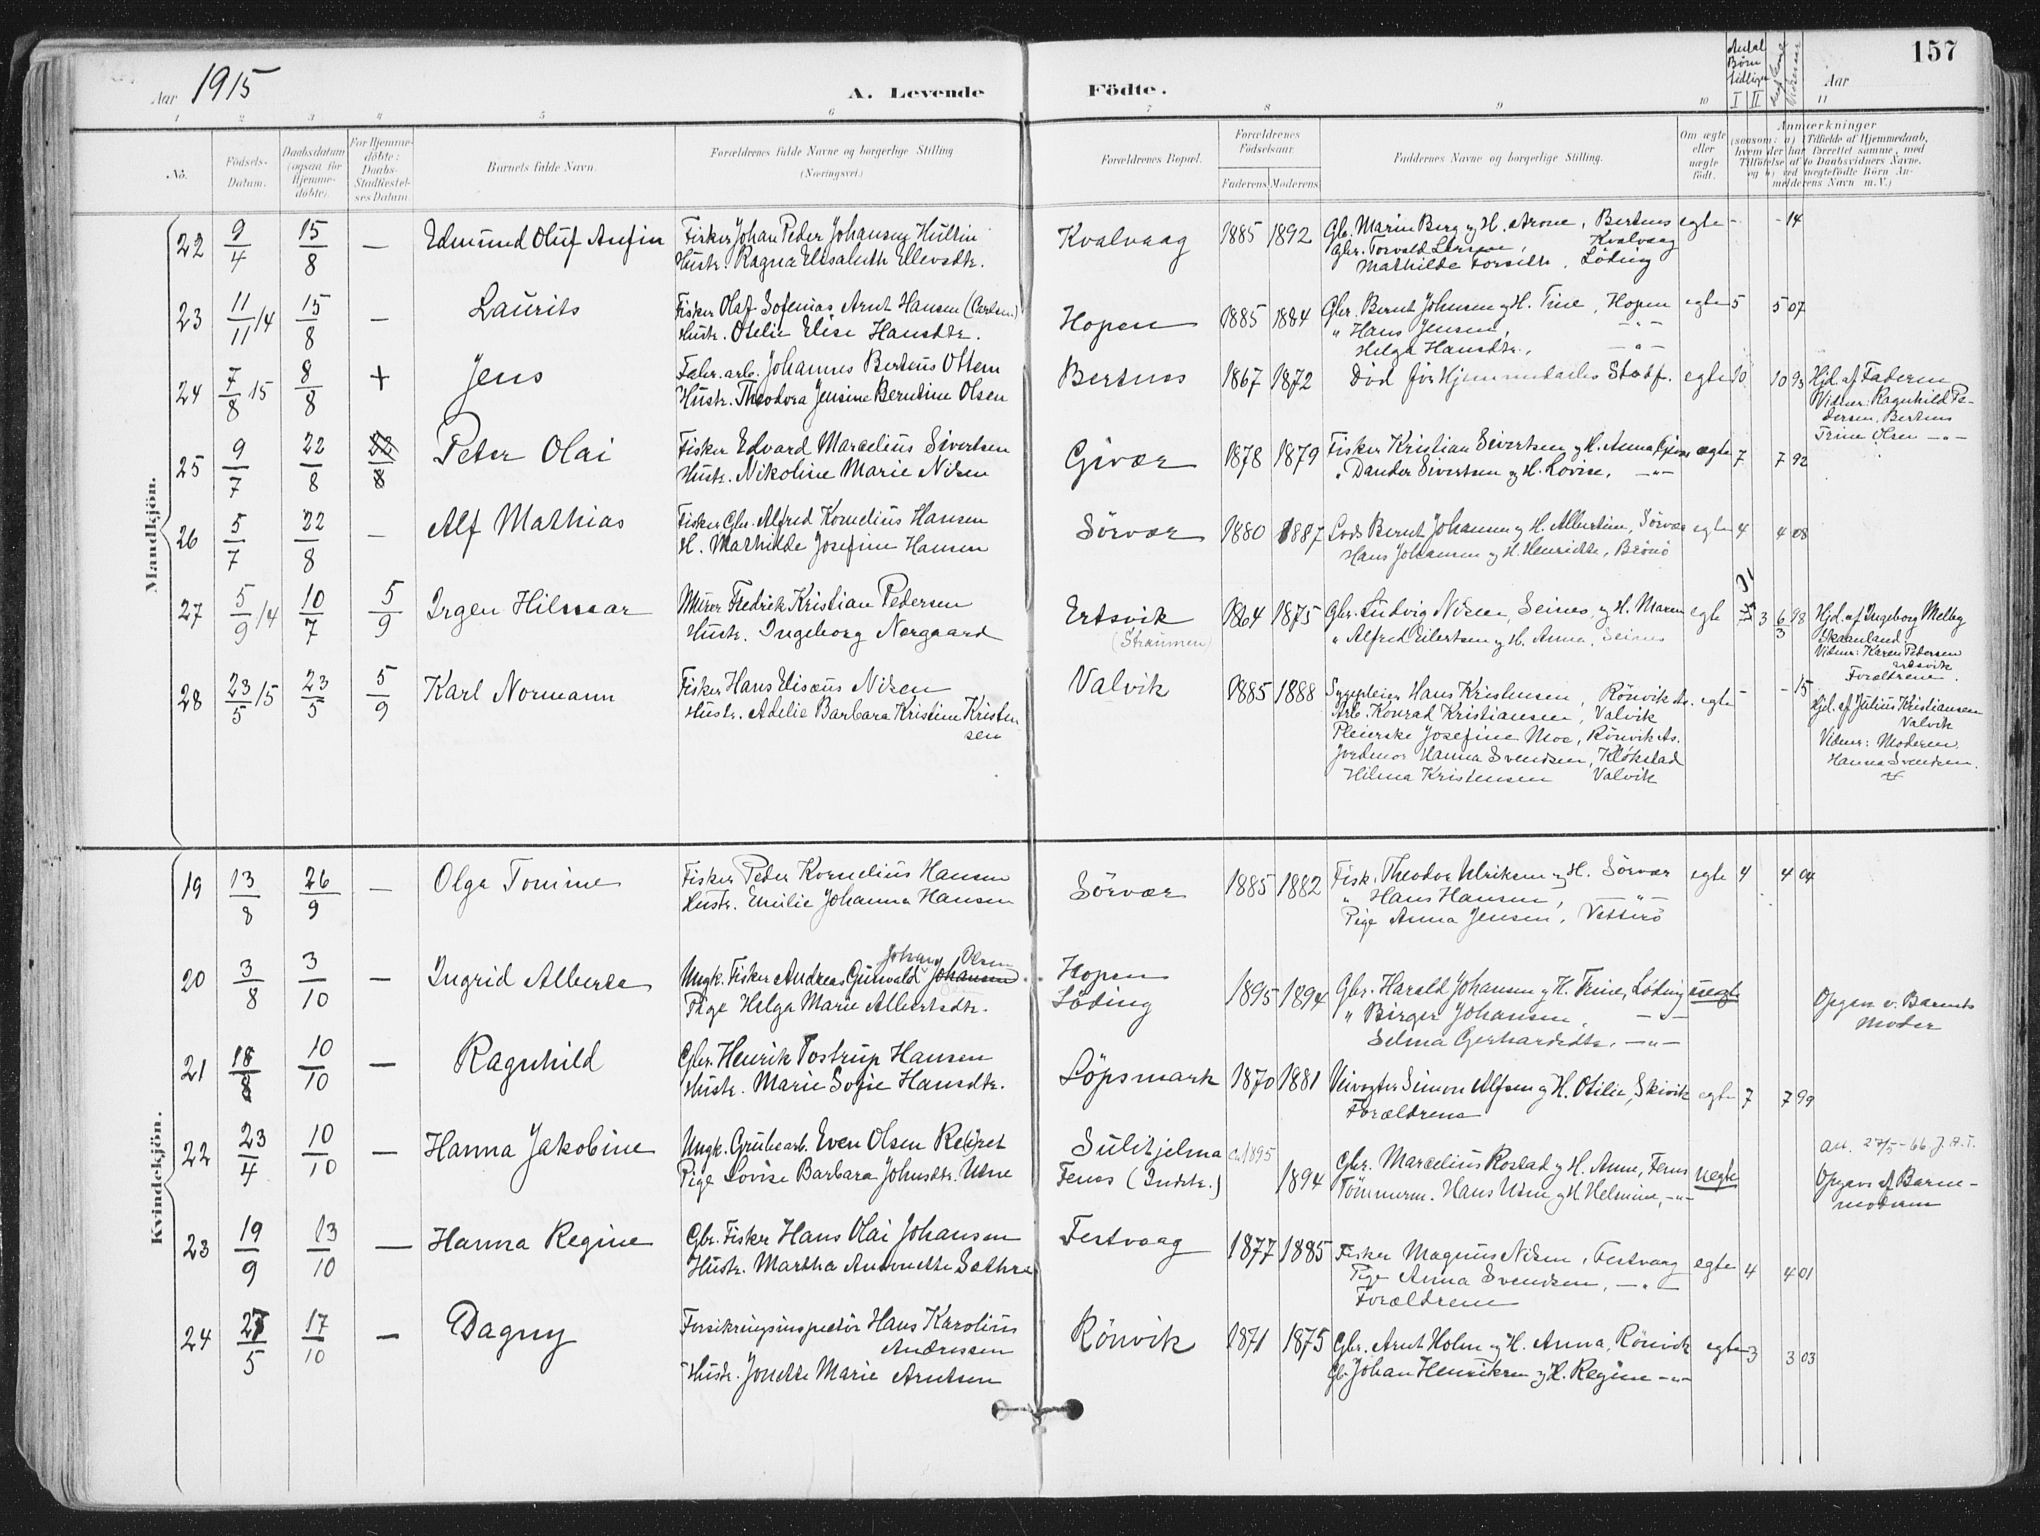 157
Aar 1915 A. Levende Födte. Aar
Antal Børn tidligere
1 2 3 4 5 6 7 8 9 10 I II 11
No.
Födsels-Datum.
Daabsdatum (ogsaa for Hjemme-döbte).
For Hjemme-döbte: Daabs-Stadfestel-ses Datum.
Barnets fulde Navn.
Forældrenes fulde Navne og borgerlige Stilling (Næringsvei.)
Forældrenes Bopæl.
Forældrenes Födselsaar.
Faderens Moderens
Faddernes Navne og borgerlige Stilling.
Om ægte eller uægte födt.
Anmærkninger
Mandkjön.
22 9/4 15/8 — Edmund Oluf Anfin Fisker Johan Peder Johansen Hultin Kvalvaag 1885 1892 Gb. Marin Berg og H. Arone, Bertnes egte - - 14
Hustr. Ragna Elisabeth Ellevsdtr. Gbr. Torvald Larsen, Kvalvaag
Mathilde Forsetk, Løding
23 11/11 14 15/8 — Laurits Fisker Olaf Sofenias Arnt Hansen (Carlsen) Hopen 1885 1884 Gbr. Bernt Johnsen og H. Trine, Hopen egte 5 5 07
Hustr. Otelie Elise Hansdtr. " Hans Jensen, —"—
Helga Hansdtr., —"—
24 7/8 15 8/8 + Jens Fabr. arb. Johannes Berteus Ottem Bertnes 1867 1872 Død før Hjemmedaabs Stadf. egte 10 10 93 Hjd. af Faderen
Hustr. Theodora Jensine Berntine Olsen Vidner: Ragnhild Pedersen, Bertnes
Trine Olsen —"—
25 9/7 22/8 22/8 Peter Olai Fisker Edvard Marcelius Sivertsen Givær 1878 1879 Fisker Kristian Sivertsen og H. Anna Givær ægte 7 7 92
Hustr. Nikoline Marie Nilsen " Dander Sivertsen og H. Lovise, —"—
26 5/7 22/8 — Alf Mathias Fisker Gbr. Alfred Kornelius Hansen Sörvær 1880 1887 Lods Bernt Johansen og H. Albertine, Sörvær egte 4 4 08
H. Mathilde Josefine Hansen Hans Johansen og H. Henriette, Bröno
27 5/9 14 10/7 5/9 Irgen Hilmar Murer Fredrik Kristian Pedersen Ertsvik 1864 1875 Gbr. Ludvig Nilsen, Seines, og H. Maren egte 3 6/3 98 Hjd. af Ingeborg Melby
Hustr. Ingeborg Nørgaard (Straumen) " Alfred Eilertsen og H. Anna, Seines Skaanland.
Vidner: Karen Pedersen Ertsvik
Forældrene.
28 23/5 15 23/5 5/9 Karl Normann Fisker Hans Elisæus Nilsen Valvik 1885 1888 Sygepleier Hans Kristensen, Rönvik As. egte - - 15 Hjd. af Julius Kristiansen
Hustr. Adelie Barbara Kristine Kristensen Arb. Konrad Kristiansen, Valvik Valvik
Pleierske Josefine Moe, Rönvik As. Vidner: Moderen
Jordmor Hanna Svendsen, Kløkstad Hanna Svendsen.
Hilma Kristensen Valvik
Kvindekjön.
19 13/8 26/9 — Olga Tomine Fisker Peder Kornelius Hansen Sörvær 1885 1882 Fisk. Theodor Ulriksen og H. Sörvær egte 4 4 04
Hustr. Emilie Johanna Hansen " Hans Hansen, —"—
Pige Anna Jensen,
20 3/8 3/10 — Ingrid Alberte Ungk. Fisker Andreas Gunvald Johansen Johan Olsen Hopen 1895 1894 Gbr. Harald Johansen og H. Trine, Løding uegte
Pige Helga Marie Albertsdtr. Löding " Birger Johansen, —"— Opgav v. Barnets Moder
Selma Gerhardsdtr. —"—
21 18/8 10/10 — Ragnhild Gbr. Henrik Tostrup Hansen Löpsmark 1870 1881 Veivogter Simon Alfsen og H. Otilie, Skivik egte 7 7 99
Hustr. Marie Sofie Hansdtr. Forældrene
22 23/4 10/10 — Hanna Jakobine Ungk. Grubearb. Even Olsen Sulitjelma ca 1895 Gbr. Marcelius Rostad og H. Anne, Fenes uegte att. 27/5-66. J.A.T.
Pige Lovise Barbara Johnsdtr. Utne Fenes (Indstr.) 1894 Tömmerm. Hans Utne og H. Helmine, —"— Opgave af Barnemoderen
23 19/9 13/10 — Hanna Regine Gbr. Fisker Hans Olai Johansen Festvaag 1877 1885 Fisker Magnus Nilsen, Festvaag egte 4 4 01
Hustr. Martha Antonette Sæthre Pige Anna Svendsen, —"—
Forældrene
24 27/5 17/10 — Dagny Forsikringsinspektör Hans Karolius Andressen Rönvik 1871 1875 Gbr. Arnt Holm og H. Anna, Rönvik egte 3 3 03
Hustr. Jonette Marie Arntsen Gb. Johan Henriksen og H. Regine —"—